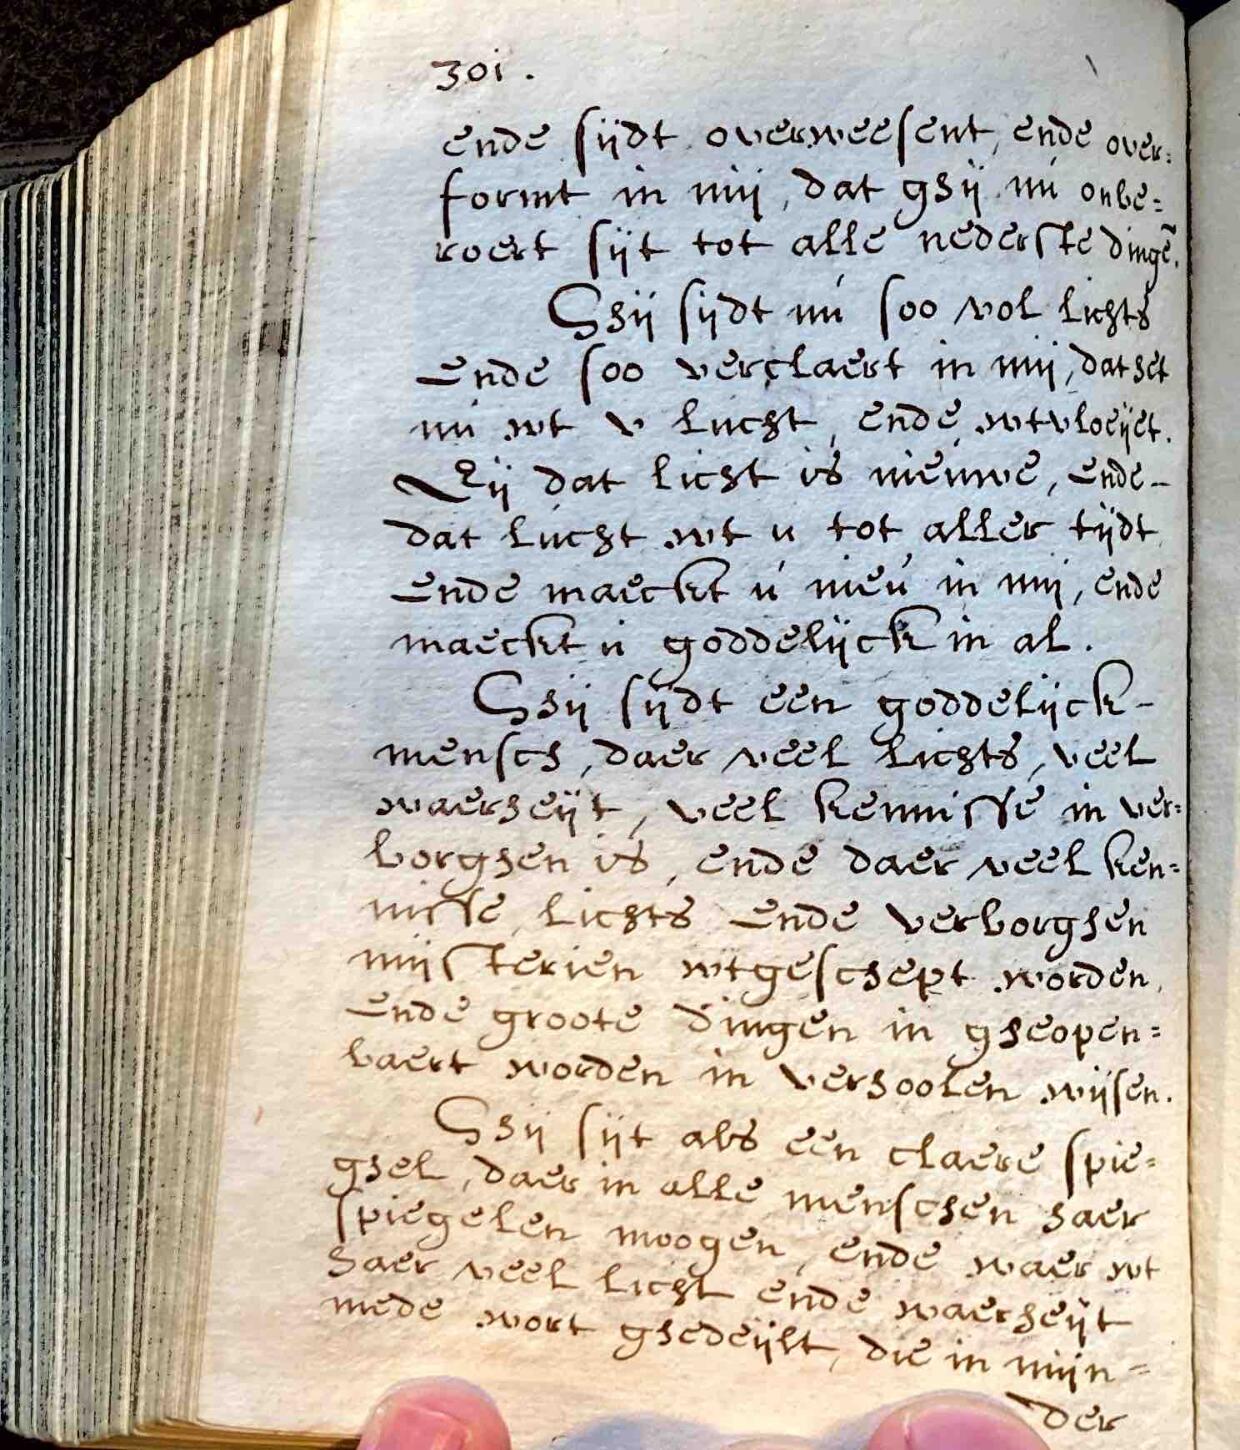 301.
ende sijdt overweesent, ende over=
formt in mij, dat ghij nu onbe=
roert sijt tot alle nederste dingē.
Ghij sijdt nú soo vol lichts
Ende soo verclaert in mij, dat het
nú wt v lucht, ende wtvloeijet.
Bij dat licht is nieuwe, ende-
dat lucht wt u tot aller tijdt
Ende maeckt ú nieú in mij, ende
maeckt ú goddelijck in al.
Ghij sijdt een goddelijck-
mensch, daer veel lichts, veel
waerheijt, veel kennisse in ver=
borghen is, ende daer veel ken=
nisse, lichts Ende verborghen
mijsterien wtgeschept worden,
Ende groote dingen in gheopen=
baert worden in verhoolen wijsen.
Ghij sijt als een claere spie=
ghel, daer in alle menschen haer
spiegelen moogen, ende waer wt
haer veel licht ende waerheijt
mede wort ghedeijlt, die in mijn=
der